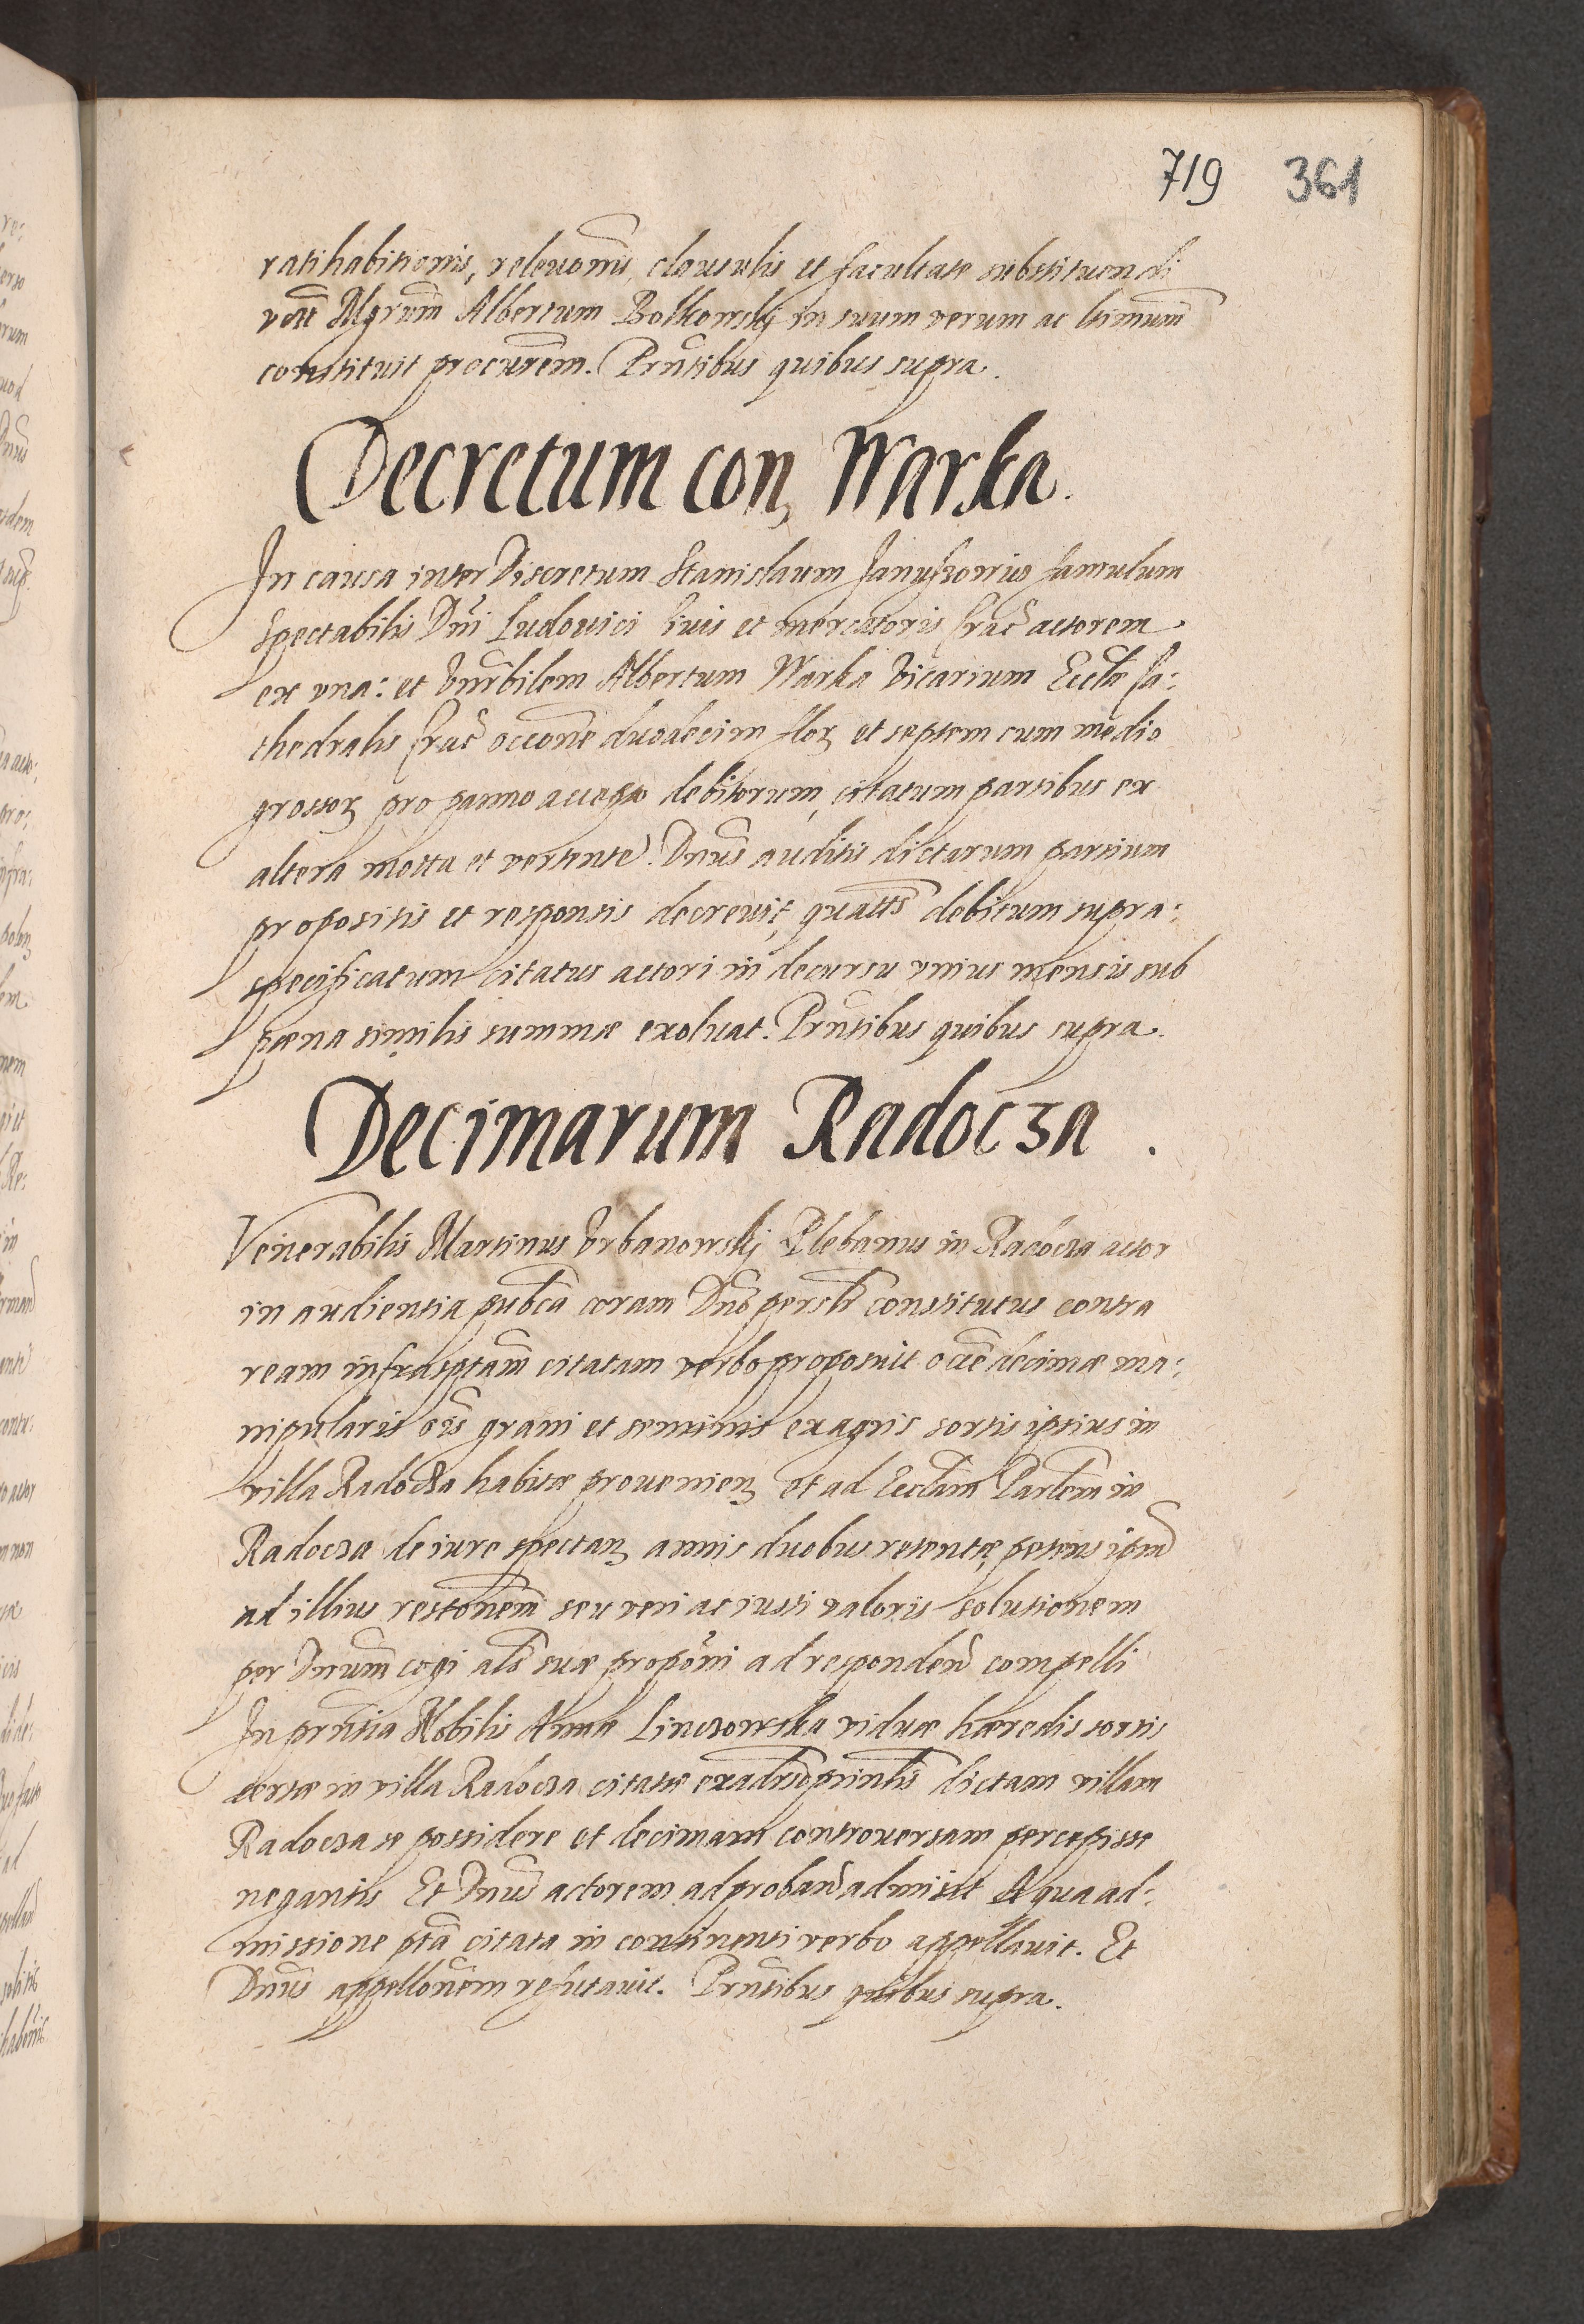 719 361
ratihabitionis, releuonis, clausulis et facultate substituendi
Mgrum Albertum Bolkowskj in suum verum ac ltimum
constituit procurem. Prntibus quibus supra.
Decretum con, Warka.
In causa inter Discretum Stanislaum famulum
Spectabilis Dni Ludouici Ciuis et mercatoris Crac actorem
ex vna: et Vnrbilem Albertum Warka Vicarium Ecclæ Ca:
thedralis Crac occone duodecim flor et septem cum medio
grossor pro panno accepto debitorum, citatum partibus ex
altera mota et vertente. Dnus auditis dictarum partium
propositis et responsis decreuit, quatts debitum supra:
specificatum citatus actori in decursu vnius mensis sub
pœna similis summæ exoluat. Prntibus quibus supra.
Decimarum Radocza.
Venerabilis Martinus Vrbanowskj Plebanus in Radocza actor
in audientia pubca coram Dno persltr constitutus contra
ream infrasptam citatam verbo proposuit occe decimæ ma:
nipularis ois grani et seminis ex agris sortis ipsius in
villa Radocza habitæ prouenien et ad Ecclam Parlem in
Radocza de iure spectan annis duobus retentæ, petens ipm
ad illius restonem seu veri ac iusti valoris solutionem
per Dnum cogi als suæ proponi ad respondend compelli
In prntia Nobilis Annæ Linczowska viduæ hæredis sortis
certæ in villa Radocza citatæ ex aduerso dictam villam
Radocza se possidere et decimam controuersam percepisse
negantis Et Dnus actorem ad proband admisit A qua ad:
missione pta citata in continenti verbo appellauit. Et
Dnus appellonem refutauit. Prntibus quibus supra.